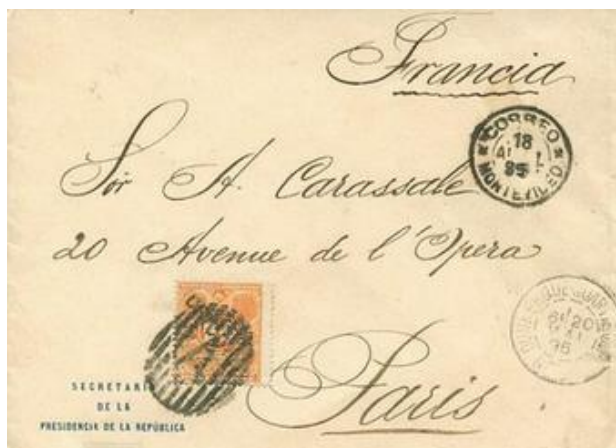 Francia
CORREO
18
95
MONTEVIDEO
Sor A. Carassale
20 Avenue de l'Opera
Paris
SECRETARIA
DE LA
PRESIDENCIA DE LA REPÚBLICA